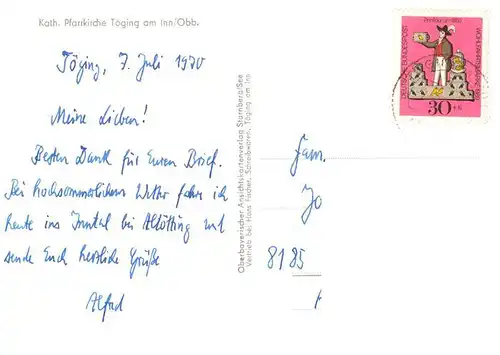 Kath. Pfarrkirche Töging am Inn/Obb.
Töging, 7. Juli 1970
Meine Lieben!
Besten Dank für Euren Brief.
Bei hochsommerlichem Wetter fahre ich
heute ins Inntal bei Altötting und
sende Euch herzliche Grüße
Alfred
Oberbayerischer Ansichtskartenverlag Starnberg/See
Vertrieb bei: Hans Fischer, Schreibwaren, Töging am Inn
Zinnfigur um 1830
DEUTSCHE BUNDESPOST
WOHLFAHRTSMARKE
30
Fam.
Jo
8185